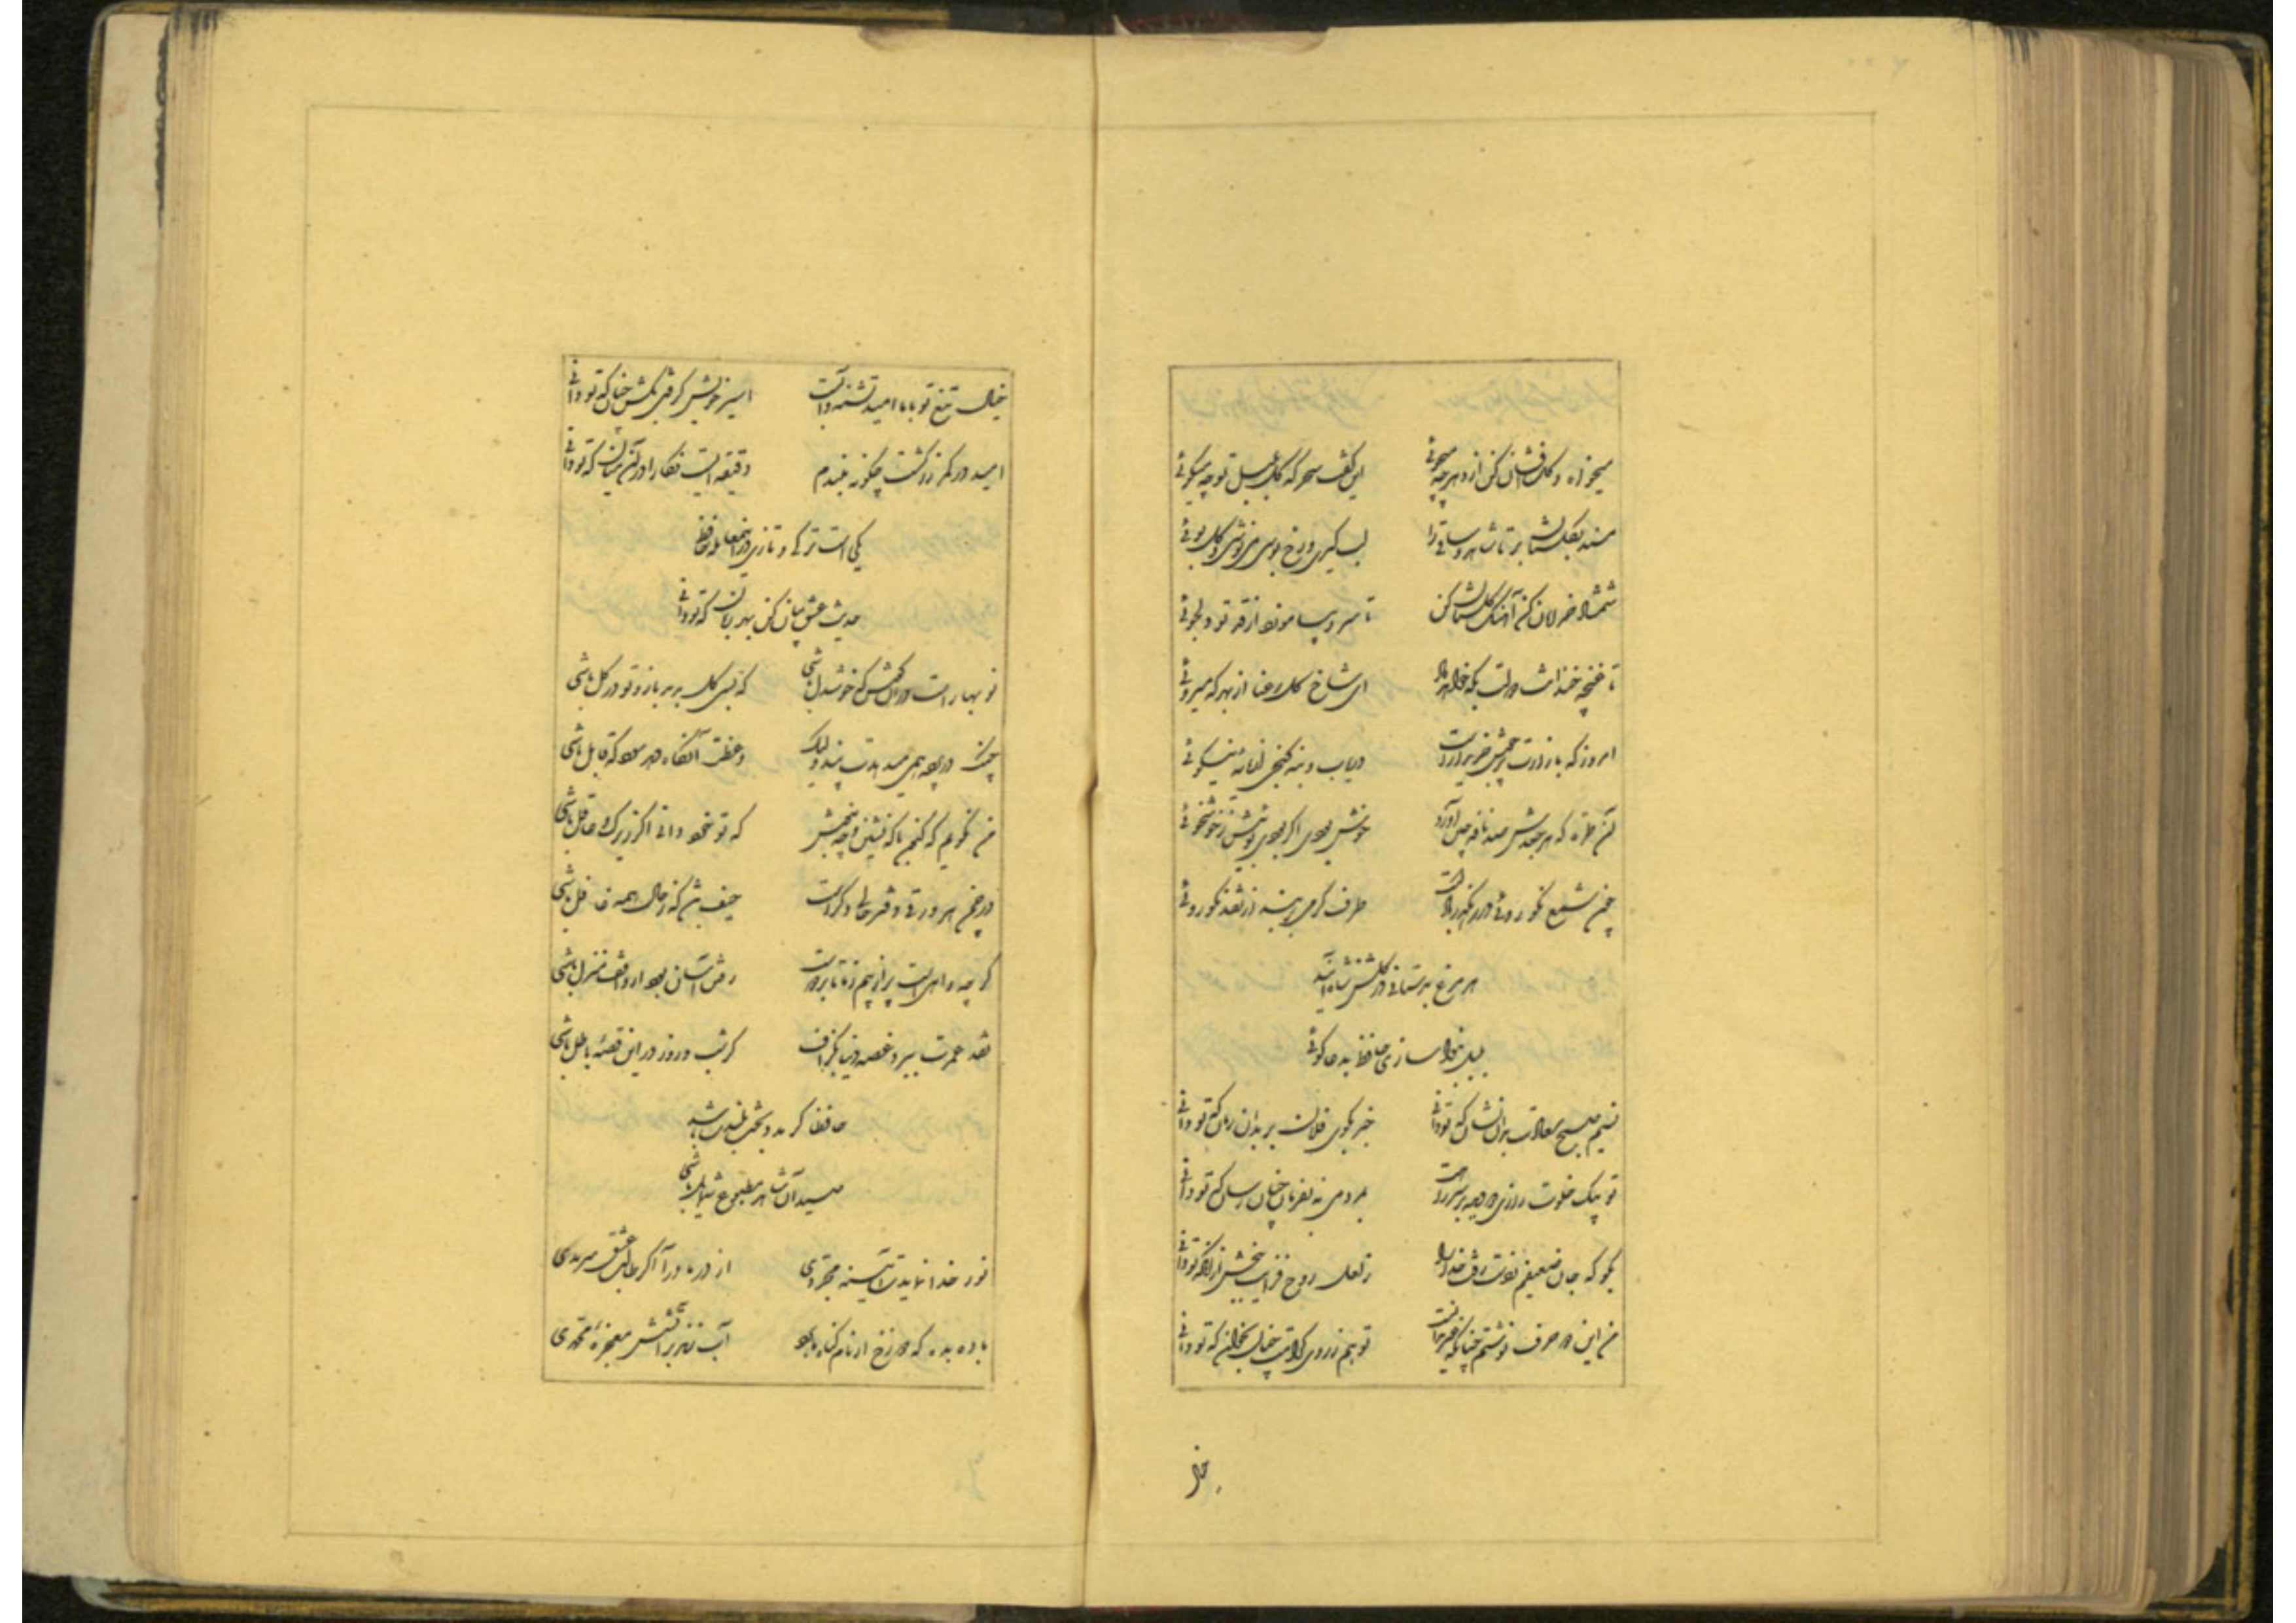 میخواه و گل افشان کن از دهر چه میجوئی این گفت سحرگه گل بلبل تو چه میگوئی
مسند بگلستان بر تا شاهد و ساقی را لب گیری و رخ بوسی می نوشی و گل بوئی
شمشاد خرامان کن آهنگ گلستان کن تا سرو بیاموزد از قد تو دلجوئی
تا غنچه خندانت دولت بکه خواهد داد ای شاخ گل رعنا از بهر که میروئی
امروز که بازارت پرجوش خریدارست دریاب و بنه گنجی از مایه نیکوئی
آن طره که هر جعدش صد نافه چین آرد خوش بودی اگر بودی بوئیش ز خوشخوئی
چون شمع نکوروئی در رهگذر بادست طرف کرمی بر بند از شمع نکوروئی
هر مرغ بدستانی در گلشن شاه آمد
بلبل بنواسازی حافظ بدعاگوئی
نسیم صبح سعادت بدان نشان که تو دانی خبر بکوی فلان بر بدان زمان که تو دانی
تو پیک خلوت رازی و دیده بر سر راهت بمردمی نه بفرمان چنان رسان که تو دانی
بگو که جان ضعیفم ز دست رفت خدا را ز لعل روح فزایت ببخش از آنکه تو دانی
من این دو حرف نوشتم چنانکه غیر ندانست تو هم ز روی کرامت چنان بخوان که تو دانی
خیال
خیال تیغ تو با ما امید تشنه و آبست اسیر خویش گرفتی بکش چنان که تو دانی
امید در کمر زرکشت چگونه ببندم دقیقه ایست نگارا در آن میان که تو دانی
یکیست ترکی و تازی درین معامله حافظ
حدیث عشق بیان کن بهر زبان که تو دانی
نوبهارست در آن کوش که خوشدل باشی که بسی گل بدمد باز و تو در گل باشی
چنگ در پرده همی میدهدت پند ولیک وعظت آنگاه دهد سود که قابل باشی
من نگویم که کنون با که نشین و چه بنوش که تو خود دانی اگر زیرک و عاقل باشی
در چمن هر ورقی دفتر حالی دگرست حیف باشد که ز حال همه غافل باشی
گرچه راهیست پر از بیم ز ما تا بر دوست رفتن آسان بود ار واقف منزل باشی
نقد عمرت ببرد غصه دنیا بگزاف گر شب و روز درین قصه باطل باشی
حافظا گر مدد از بخت بلندت باشد
صید آن شاهد مطبوع شمایل باشی
نور خدا نمایدت آینه مجردی از در ما درآ اگر طالب عشق سرمدی
باده بده که دوزخ ار نام گناه ما برد آب زند بر آتشش معجزه محمدی